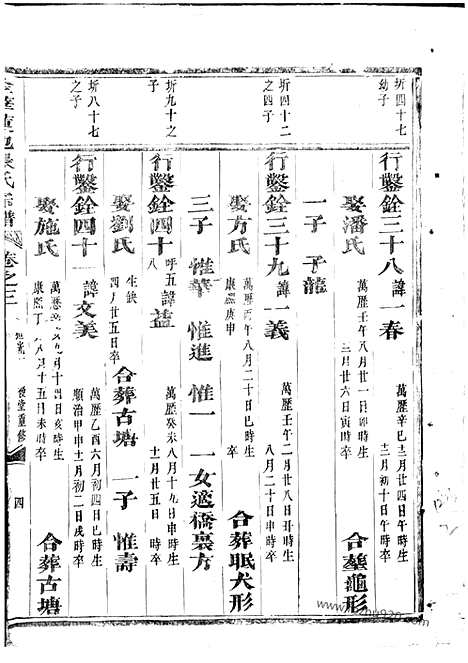 圻四十七
幼子
行鑿銓三十八 諱一春 萬歷辛巳三月廿四日午時生
三月初十日午時卒
娶潘氏 萬歷壬午八月廿一日卯時生
三月廿六日寅時卒 合塟龜形
一子 子龍
圻四十二
之四子
行鑿銓三十九 諱一義 萬歷壬午二月廿八日丑時生
八月二十日申時卒
娶方氏 萬歷丙午八月二十日巳時生
康熙庚申 卒 合葬眠犬形
三子 惟華 惟進 惟一 一女適橋裏方
圻九十之
子
行鑿銓四十 呼五八 諱益 萬歷癸未八月十九日申時生
十一月廿五日 時卒
娶劉氏 生缺
四月廿五日卒 合葬古塘 一子 惟壽
圻八十七
之子
行鑿銓四十一 諱文美 萬歷乙酉六月初四日巳時生
順治甲申十一月初二日戌時卒
娶施氏 萬歷辛卯九月十四日亥時生
康熙丁 八月十五日未時卒 合葬古塘
氏宗譜 卷之三 堂重修 四